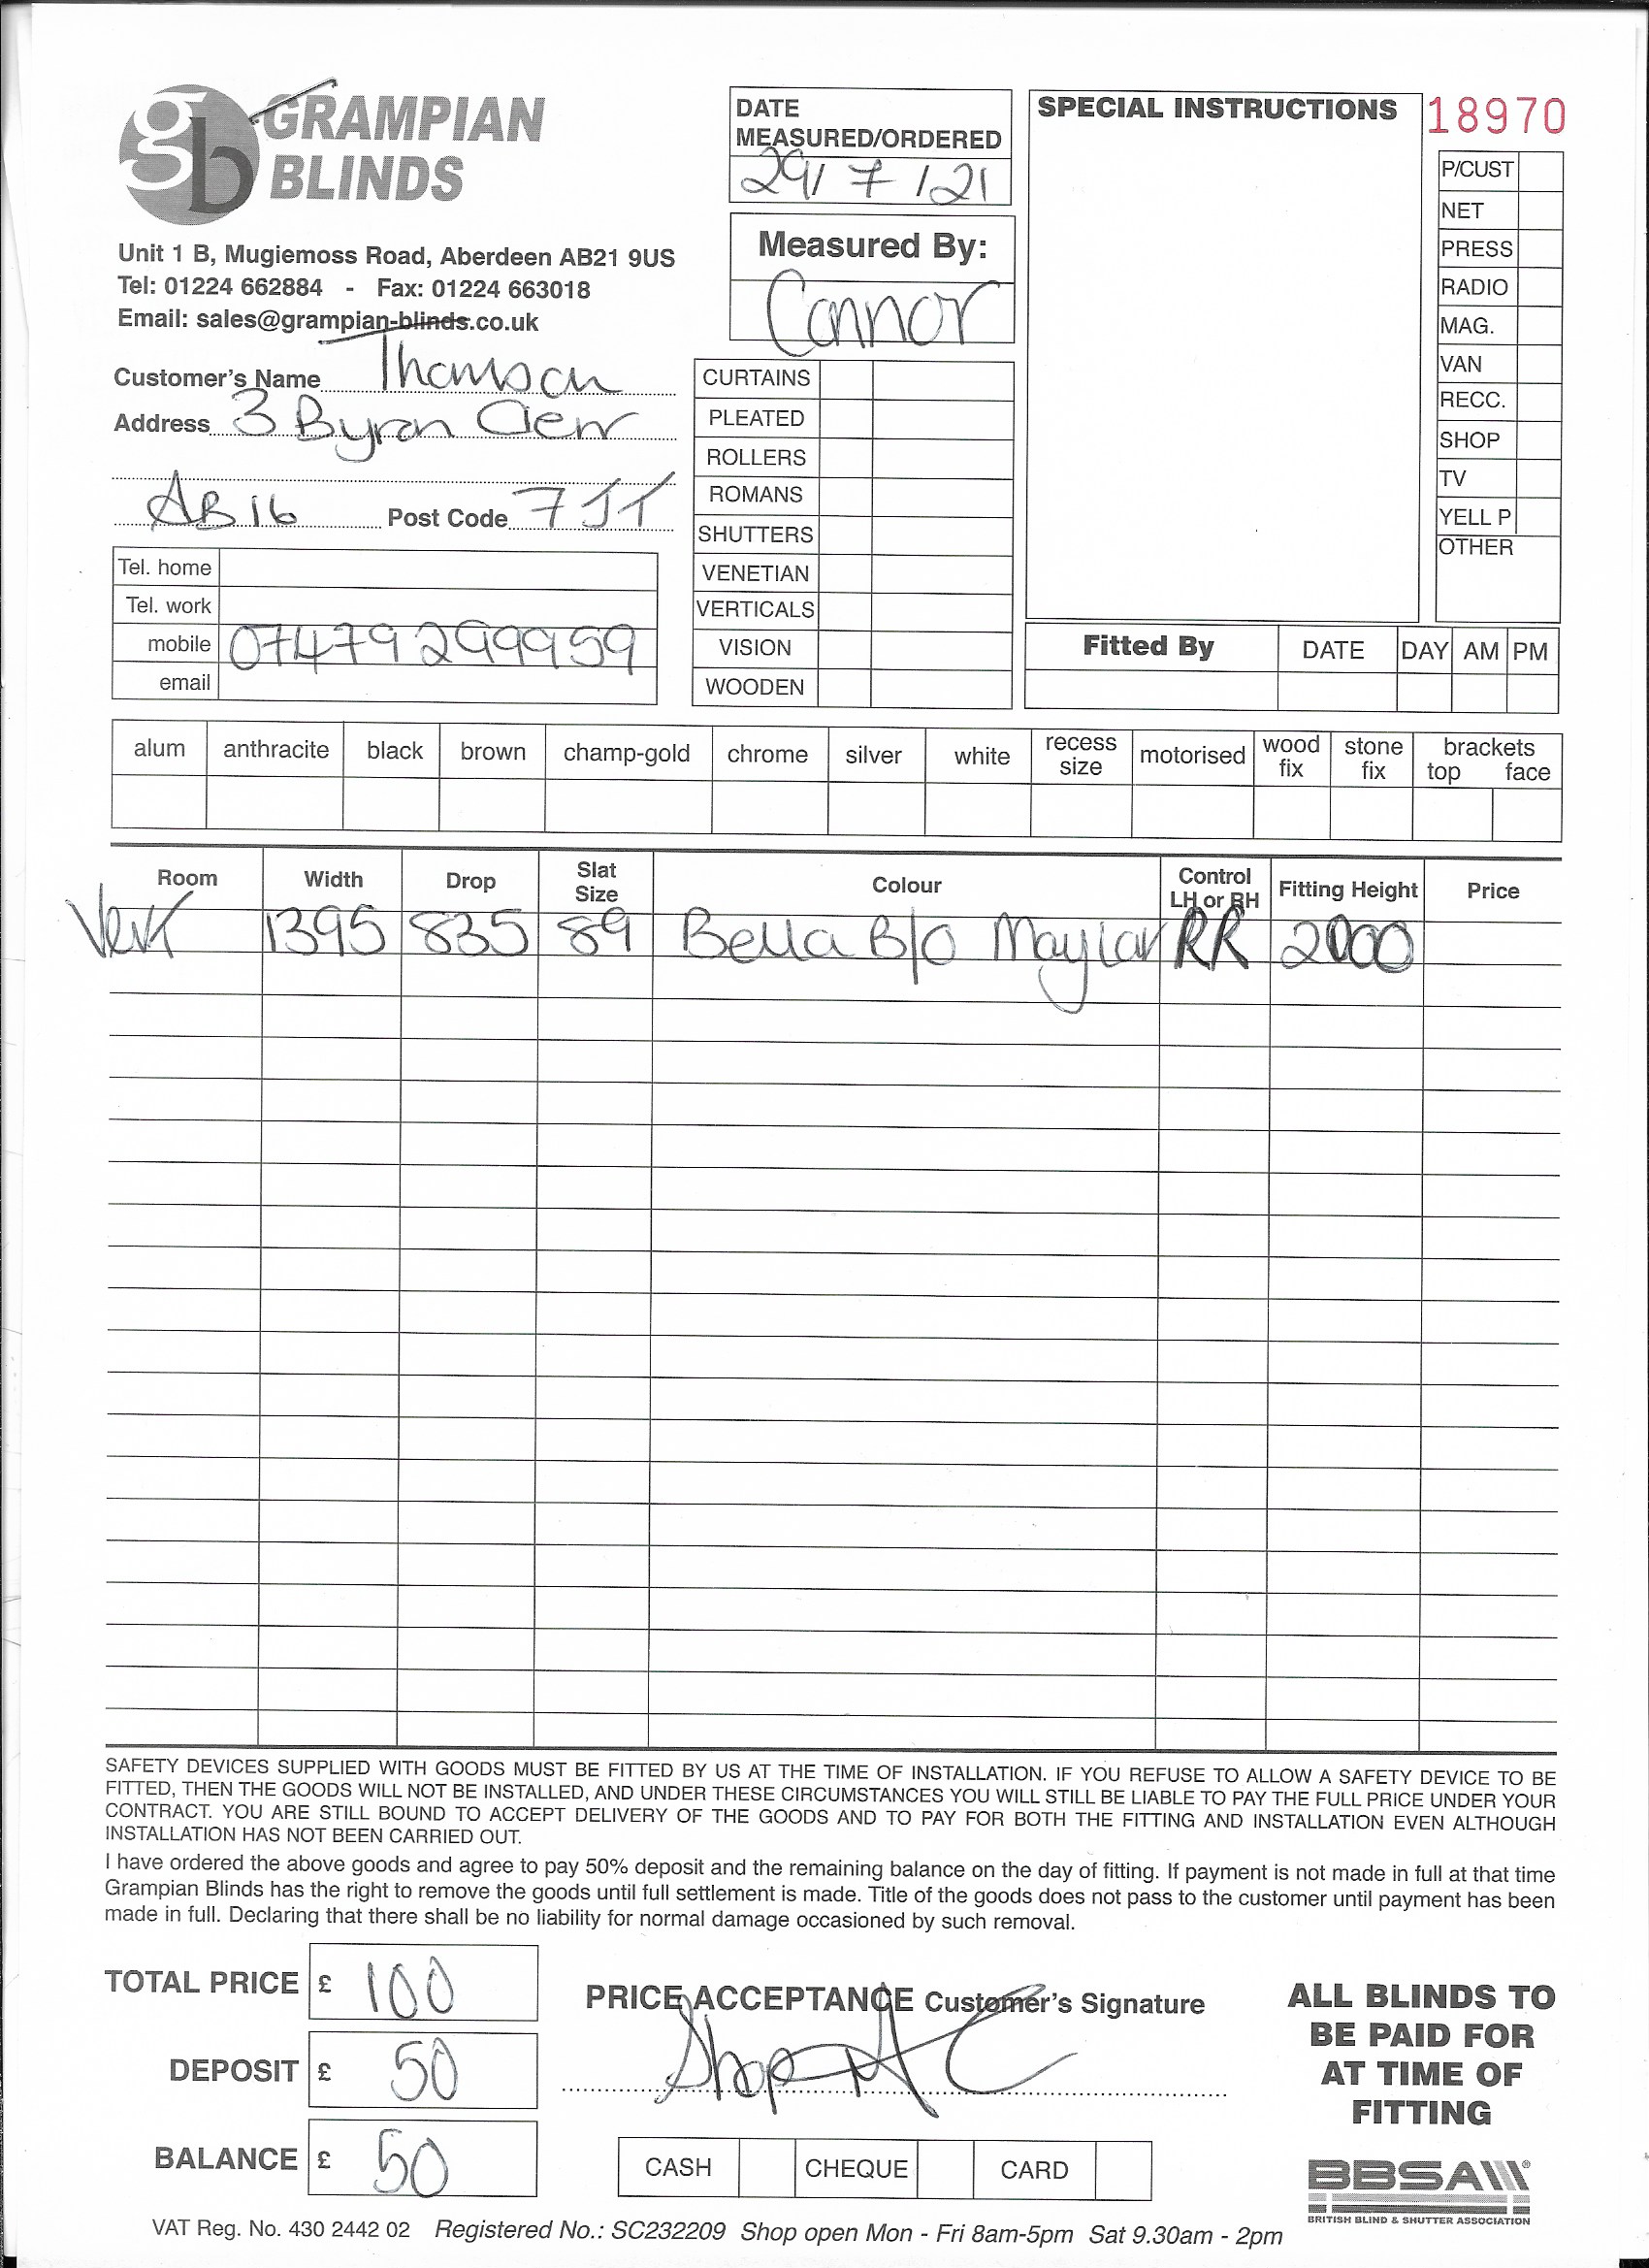 gb GRAMPIAN BLINDS
Unit 1 B, Mugiemoss Road, Aberdeen AB21 9US
Tel: 01224 662884 - Fax: 01224 663018
Email: sales@grampian-blinds.co.uk
Customer's Name Thomson
Address 3 Byron
AB16 Post Code 7JT
Tel. home
Tel. work
mobile 07479299959
email
DATE MEASURED/ORDERED
29/7/21
Measured By:
Connor
CURTAINS
PLEATED
ROLLERS
ROMANS
SHUTTERS
VENETIAN
VERTICALS
VISION
WOODEN
SPECIAL INSTRUCTIONS
18970
P/CUST
NET
PRESS
RADIO
MAG.
VAN
RECC.
SHOP
TV
YELL P
OTHER
Fitted By DATE DAY AM PM
alum anthracite black brown champ-gold chrome silver white recess size motorised wood fix stone fix brackets top face
Room Width Drop Slat Size Colour Control LH or RH Fitting Height Price
1395 835 89 Bella B/O Maylar RR 2000
SAFETY DEVICES SUPPLIED WITH GOODS MUST BE FITTED BY US AT THE TIME OF INSTALLATION. IF YOU REFUSE TO ALLOW A SAFETY DEVICE TO BE
FITTED, THEN THE GOODS WILL NOT BE INSTALLED, AND UNDER THESE CIRCUMSTANCES YOU WILL STILL BE LIABLE TO PAY THE FULL PRICE UNDER YOUR
CONTRACT. YOU ARE STILL BOUND TO ACCEPT DELIVERY OF THE GOODS AND TO PAY FOR BOTH THE FITTING AND INSTALLATION EVEN ALTHOUGH
INSTALLATION HAS NOT BEEN CARRIED OUT.
I have ordered the above goods and agree to pay 50% deposit and the remaining balance on the day of fitting. If payment is not made in full at that time
Grampian Blinds has the right to remove the goods until full settlement is made. Title of the goods does not pass to the customer until payment has been
made in full. Declaring that there shall be no liability for normal damage occasioned by such removal.
TOTAL PRICE £ 100
DEPOSIT £ 50
BALANCE £ 50
PRICE ACCEPTANCE Customer's Signature
Shop
CASH CHEQUE CARD
ALL BLINDS TO
BE PAID FOR
AT TIME OF
FITTING
BBSA
BRITISH BLIND & SHUTTER ASSOCIATION
VAT Reg. No. 430 2442 02 Registered No.: SC232209 Shop open Mon - Fri 8am-5pm Sat 9.30am - 2pm